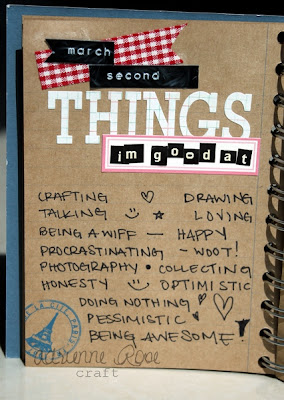 march
second
THINGS
im good at
CRAFTING ♡ DRAWING
TALKING ☺ ★ LOVING
BEING A WIFE — HAPPY
PROCRASTINATING - WOOT!
PHOTOGRAPHY • COLLECTING
HONESTY ☺ OPTIMISTIC
DOING NOTHING ♡ ♡
PESSIMISTIC ♡
BEING AWESOME!
PARIS
Rose
craft